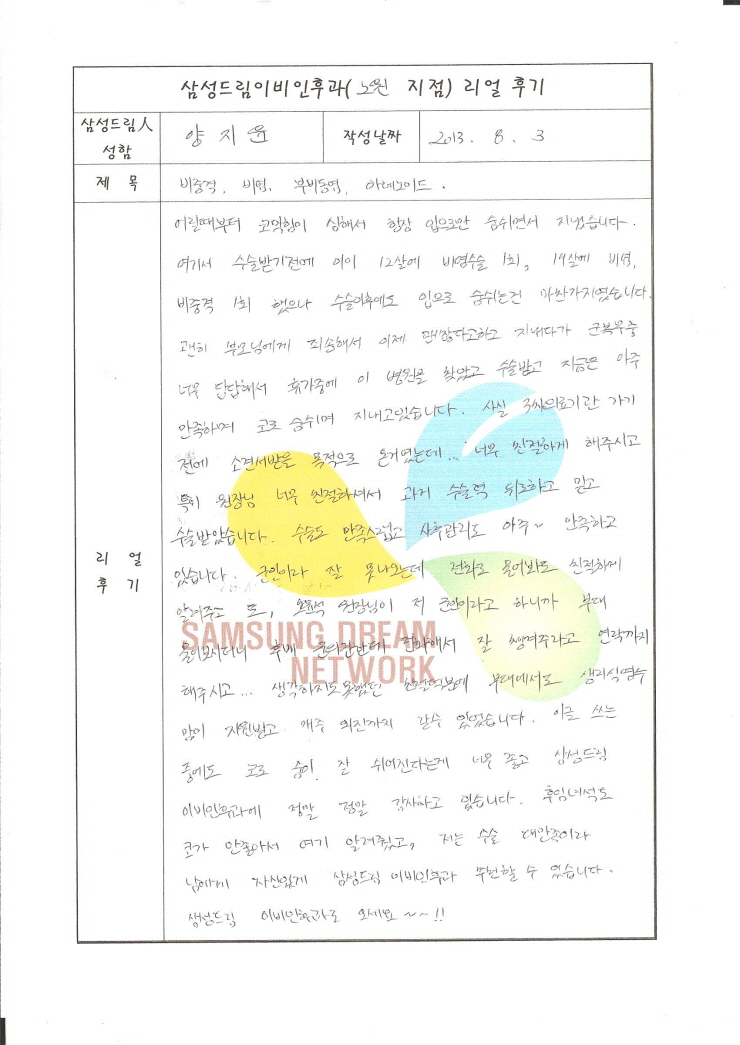 삼성드림이비인후과( 노원 지점) 리얼 후기
삼성드림人 성함
양지윤
작성날짜
2013. 8. 3
제 목
비중격, 비염, 부비동염, 아데노이드.
리 얼 후 기
어릴때부터 코막힘이 심해서 항상 입으로만 숨쉬면서 지냈습니다.
여기서 수술받기전에 이미 12살에 비염수술 1회, 19살에 비염,
비중격 1회 했으나 수술이후에도 입으로 숨쉬는건 마찬가지였습니다.
괜히 부모님에게 죄송해서 이제 괜찮다고하고 지내다가 군복무중
너무 답답해서 휴가중에 이 병원을 찾았고 수술받고 지금은 아주
만족하며 코로 숨쉬며 지내고있습니다. 사실 3차의료기관 가기
전에 소견서받을 목적으로 온거였는데... 너무 친절하게 해주시고
특히 원장님 너무 친절하셔서 과거 수술력 뒤로하고 믿고
수술받았습니다. 수술도 만족스럽고 사후관리도 아주~ 만족하고
있습니다. 군인이라 잘 못나오는데 전화로 물어봐도 친절하게
알려주고 또, 원장님이 저 군인이라고 하니까 부대
물어보시더니 후배 군의관한테 전화해서 잘 챙겨주라고 연락까지
해주시고... 생각하지도못했던 친절덕분에 부대에서도 생리식염수
많이 지원받고 매주 외진까지 갈수 있었습니다. 이글 쓰는
중에도 코로 숨이 잘 쉬어진다는게 너무 좋고 삼성드림
이비인후과에 정말 정말 감사하고 있습니다. 후임녀석도
코가 안좋아서 여기 알려줬고, 저는 수술 대만족이라
남에게 자신있게 삼성드림 이비인후과 추천할 수 있습니다.
생성드림 이비인후과로 오세요 ~~!!
SAMSUNG DREAM
NETWORK